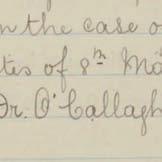 in the case o
tes of 8th Ma
Dr. O'Callagh